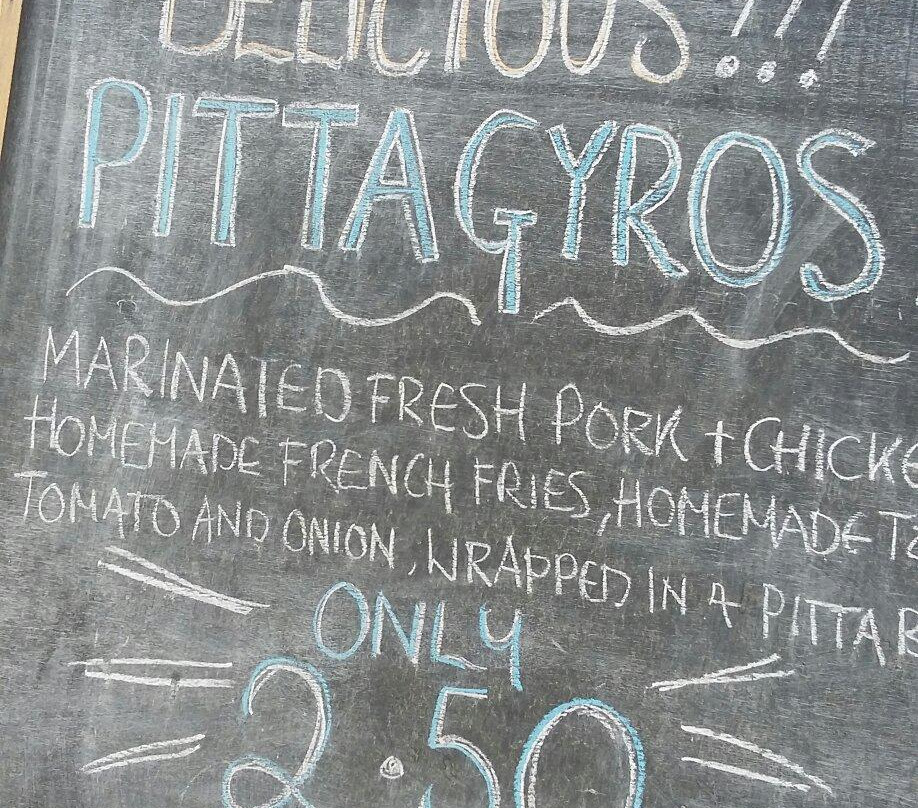 DELICIOUS!!!
PITTA GYROS
MARINATED FRESH PORK + CHICKE
HOMEMADE FRENCH FRIES, HOMEMADE TZ
TOMATO AND ONION, WRAPPED IN A PITTA B
ONLY
2.50